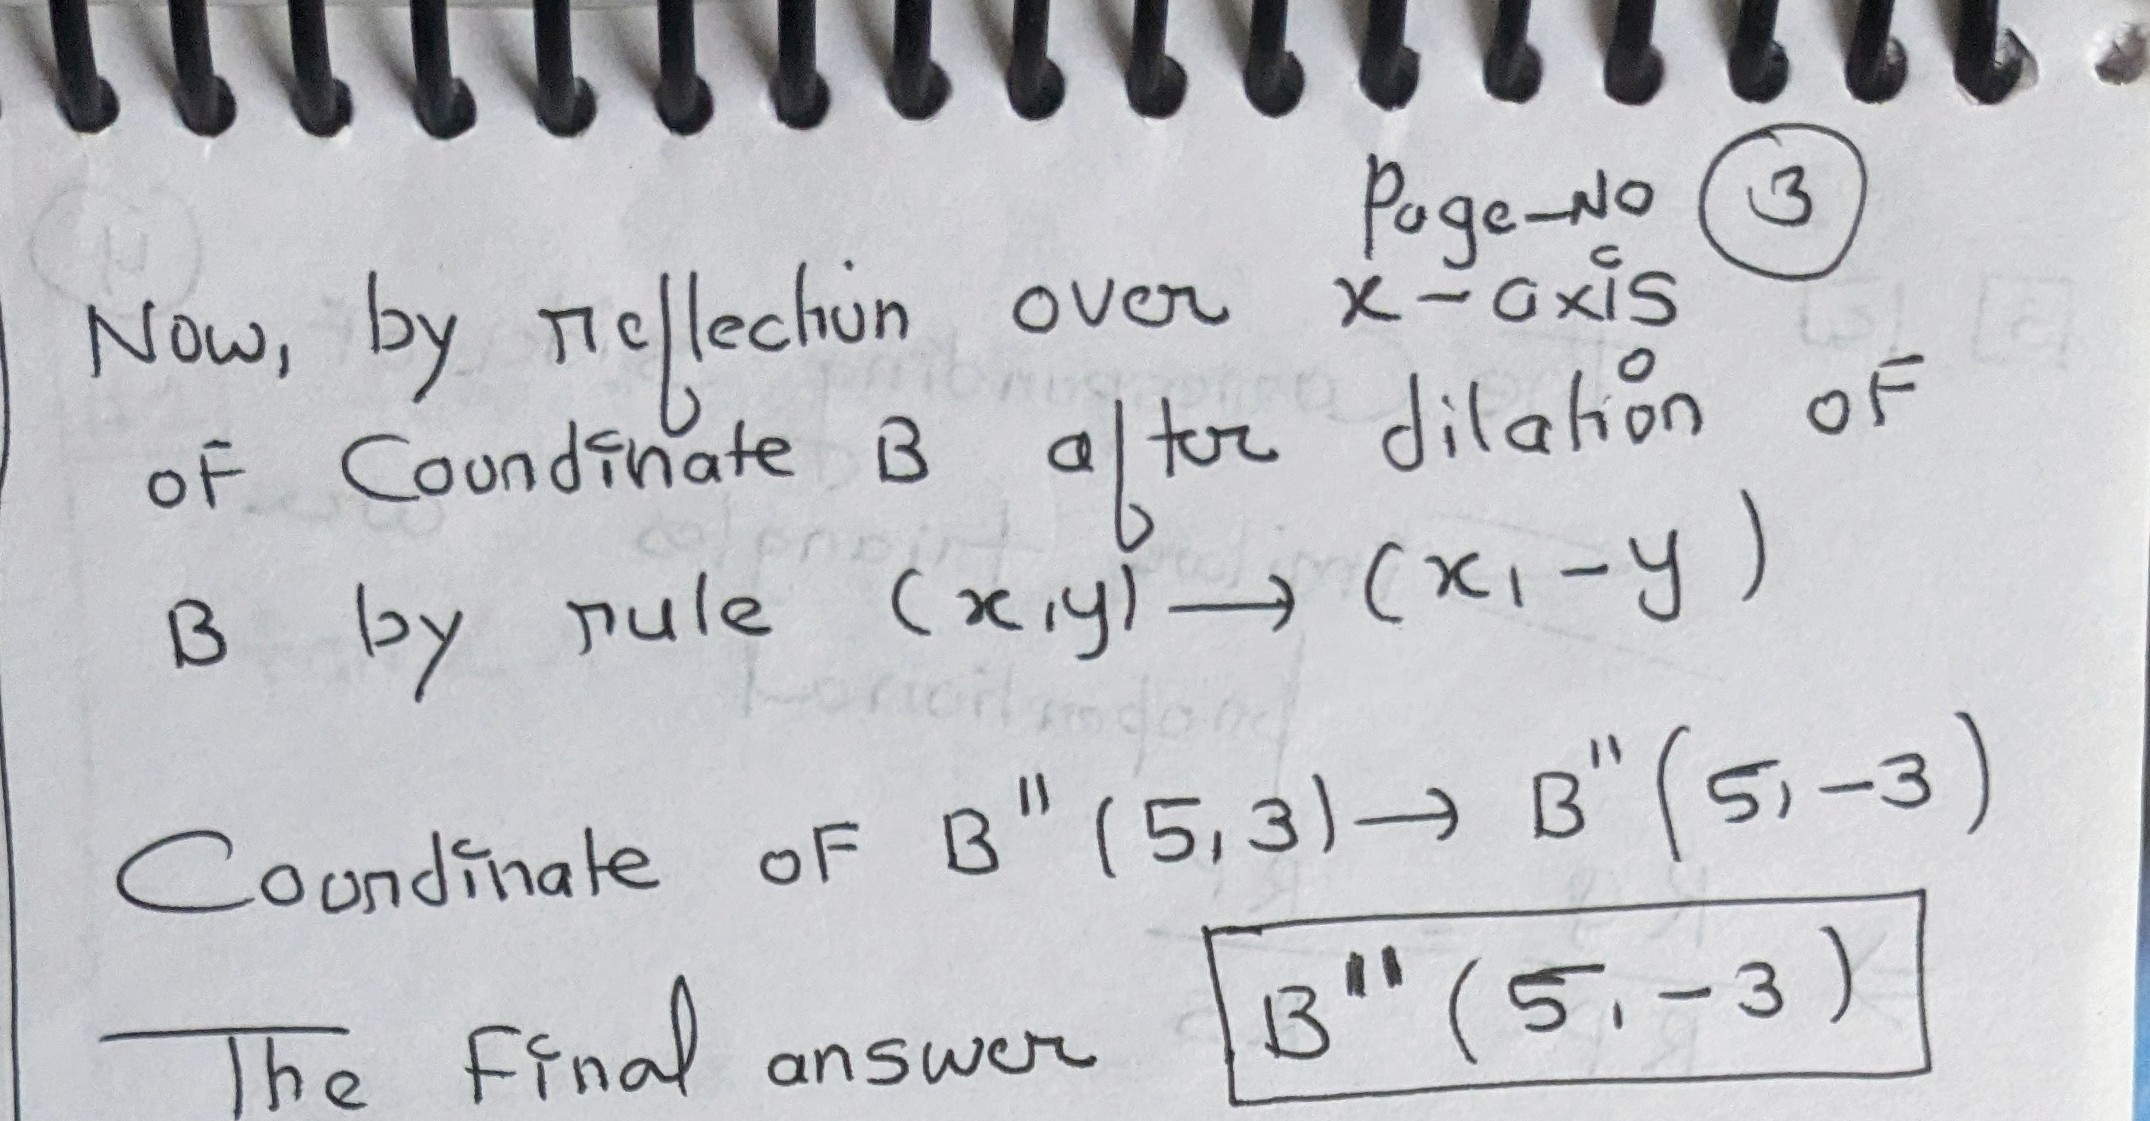 Page-No 3
Now, by reflection over x-axis
of Coordinate B after dilation of
B by rule (x,y) → (x,-y)
Coordinate of B" (5,3) → B" (5,-3)
The Final answer B" (5,-3)